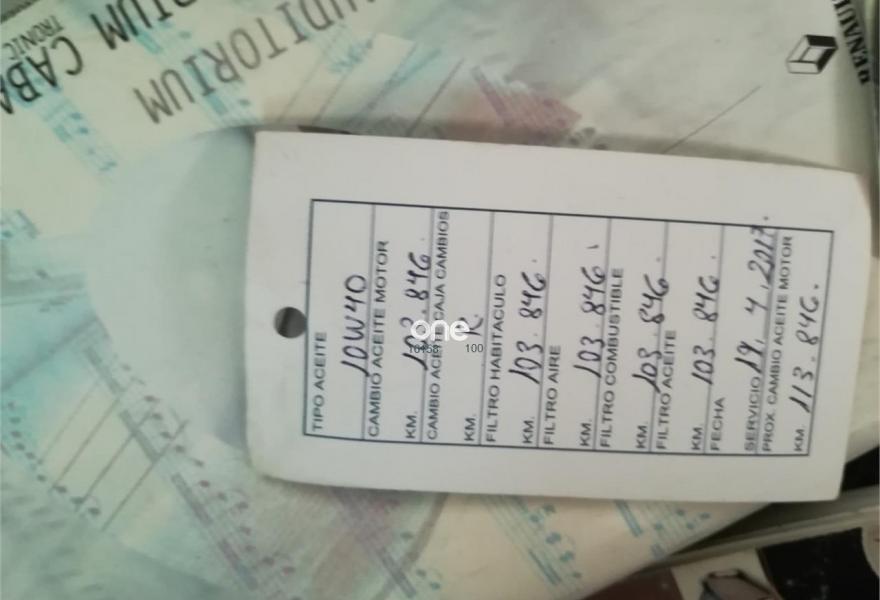 TIPO ACEITE
10W40
CAMBIO ACEITE MOTOR
KM. 103.846.
CAMBIO ACEITE CAJA CAMBIOS
KM. R.
FILTRO HABITACULO
KM. 103.846.
FILTRO AIRE
KM. 103.846.
FILTRO COMBUSTIBLE
KM. 103.846.
FILTRO ACEITE
KM. 103.846.
FECHA
SERVICIO 19.4.2017.
PROX. CAMBIO ACEITE MOTOR
KM. 113.846.
AUDITORIUM
TRONIC
RENAULT
one
100